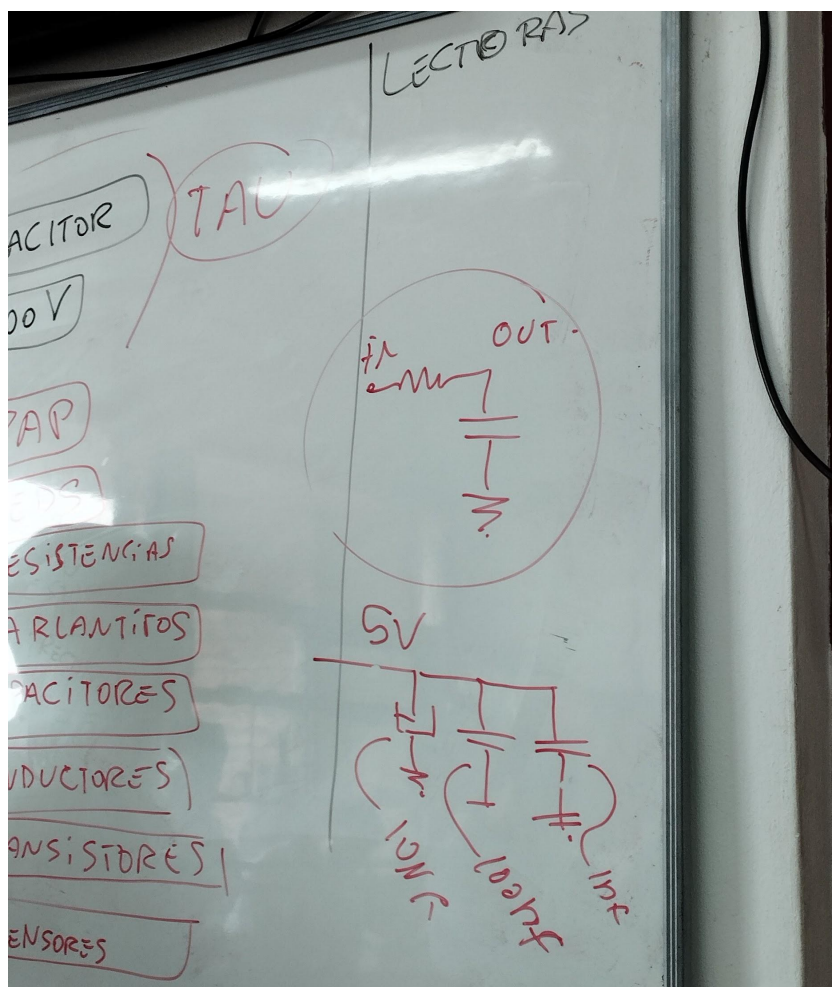 LECTORAS
ACITOR
TAU
00V
PAP
EDS
ESiSTENCiAS
ARLANTiTOS
PACiTORES
NDUCTORES
ANSiSTORES
ENSORES
in
OUT
5V
100nf
1nf